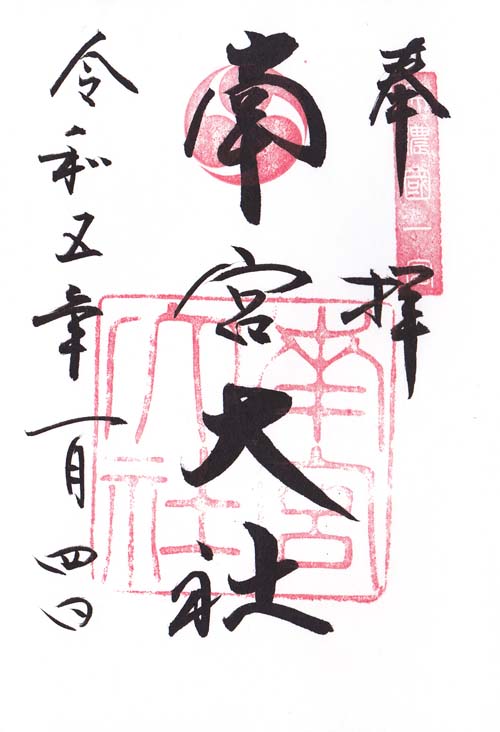 奉拝
美濃國一宮
南宮大社
南宮大社
令和五年一月四日